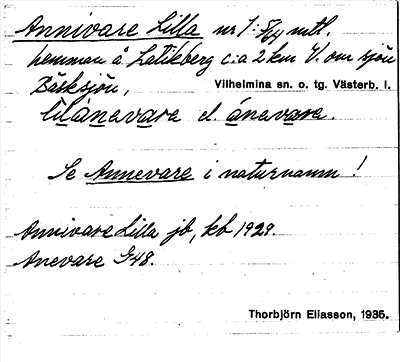 Annivare Lilla nr 1: 5/64 mtl.
hemman å Latikberg c:a 2 km V. om sjön
Bäsksjön, Vilhelmina sn. o. tg. Västerb. l.
lìlánevare el. ánevare.
Se Annevare i naturnamn!
Annivare Lilla jb, kb 1929.
Anevare G48.
Thorbjörn Eliasson, 1935.